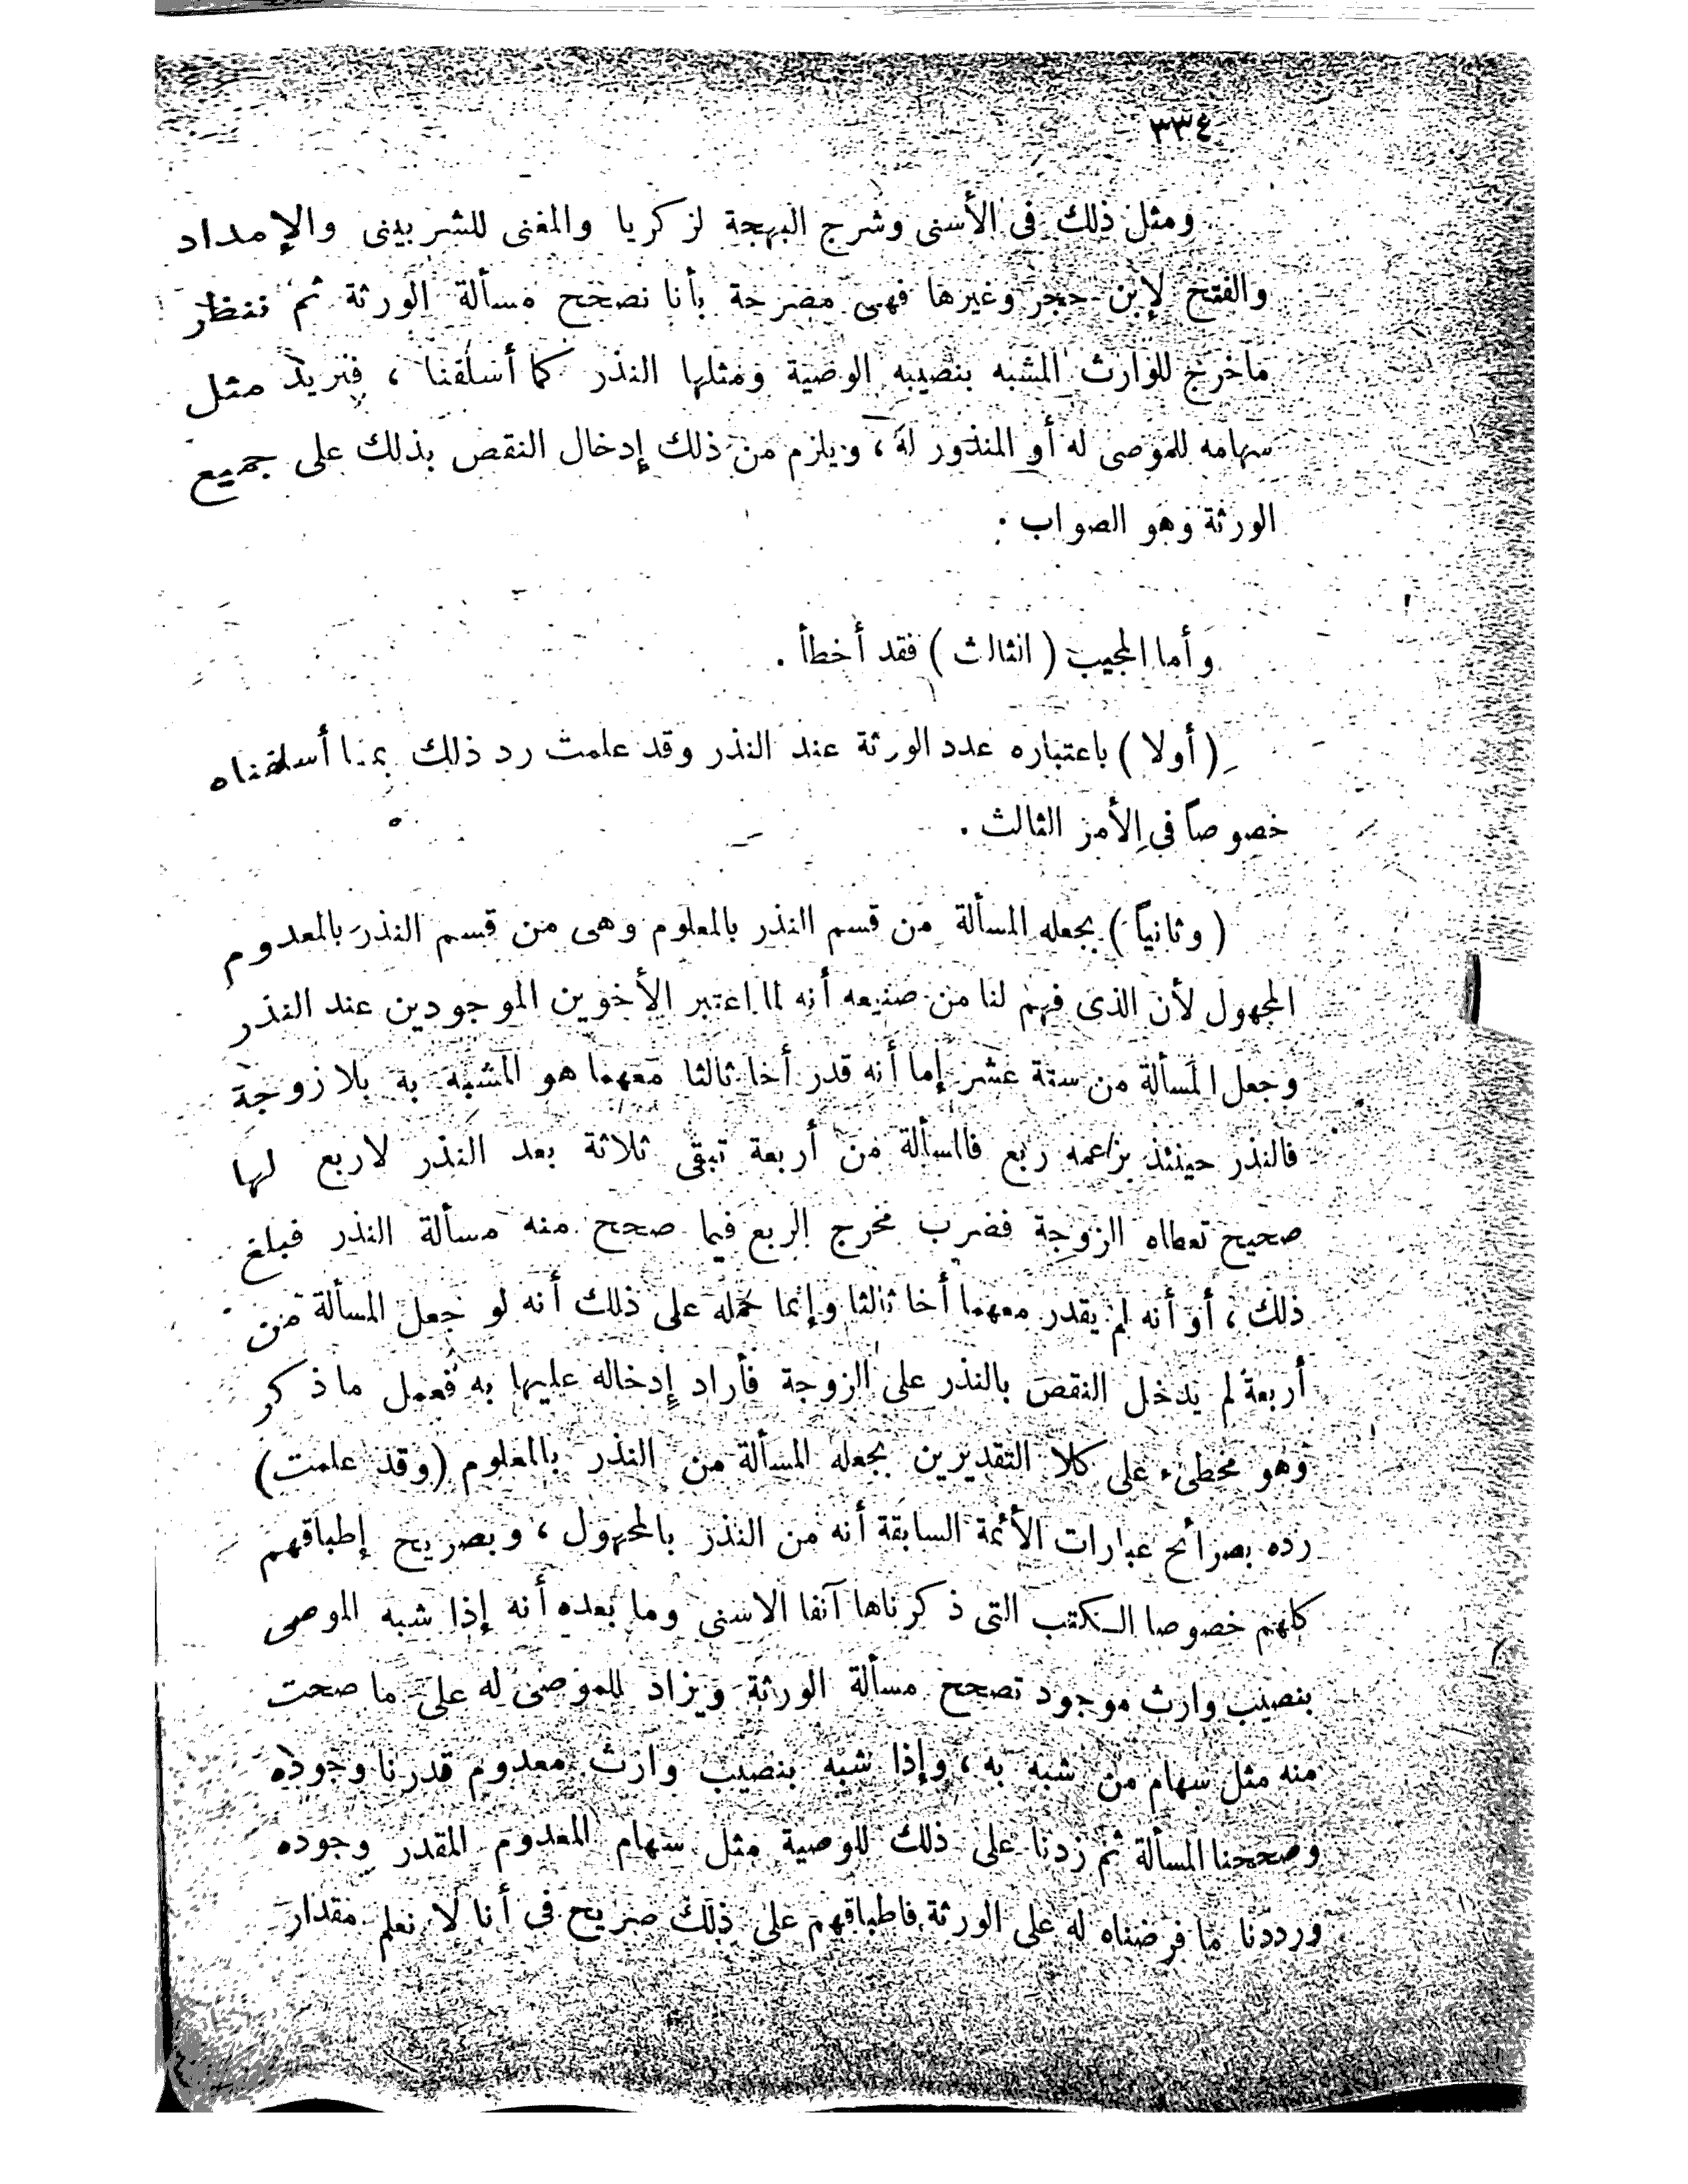 ٣٣٤
ومثل ذلك فى الأسنى وشرح البهجة لزكريا والمغنى للشربينى والإمداد
والفتح لإبن حجر وغيرها فهى مصرحة بأنا نصحح مسألة الورثة ثم ننظر
ماخرج للوارث المشبه بنصيبه الوصية ومثلها النذر كما أسلفنا ، فنزيد مثل
سهامه للموصى له أو المنذور له ، ويلزم من ذلك إدخال النقص بذلك على جميع
الورثة وهو الصواب .
وأما المجيب ( الثالث ) فقد أخطأ .
( أولا ) باعتباره عدد الورثة عند النذر وقد علمت رد ذلك بما أسلفناه
خصوصاً فى الأمر الثالث .
( وثانياً ) بجعله المسألة من قسم النذر بالمعلوم وهى من قسم النذر بالمعدوم
المجهول لأن الذى فهم لنا من صنيعه أنه لما اعتبر الأخوين الموجودين عند النذر
وجعل المسألة من ستة عشر إما أنه قدر أخا ثالثا معهما هو المشبه به بلا زوجة
فالنذر حينئذ بزعمه ربع فالمسألة من أربعة تبقى ثلاثة بعد النذر لاربع لها
صحيح تعطاه الزوجة فضرب مخرج الربع فيما صحح منه مسألة النذر فبلغ
ذلك ، أو أنه لم يقدر معهما أخا ثالثا وإنما حمله على ذلك أنه لو جعل المسألة من
أربعة لم يدخل النقص بالنذر على الزوجة فأراد إدخاله عليها به فعمل ما ذكر
وهو مخطىء على كلا التقديرين بجعله المسألة من النذر بالمعلوم (وقد علمت)
رده بصرائح عبارات الأئمة السابقة أنه من النذر بالمجهول ، وبصريح إطباقهم
كلهم خصوصا الكتب التى ذكرناها آنفا الاسنى وما بعده أنه إذا شبه الموصى
بنصيب وارث موجود تصحح مسألة الورثة ويزاد للموصى له على ما صحت
منه مثل سهام من شبه به ، وإذا شبه بنصيب وارث معدوم قدرنا وجوده
وصححنا المسألة ثم زدنا على ذلك للوصية مثل سهام المعدوم المقدر وجوده
ورددنا ما فرضناه له على الورثة فاطباقهم على ذلك صريح فى أنا لا نعلم مقدار